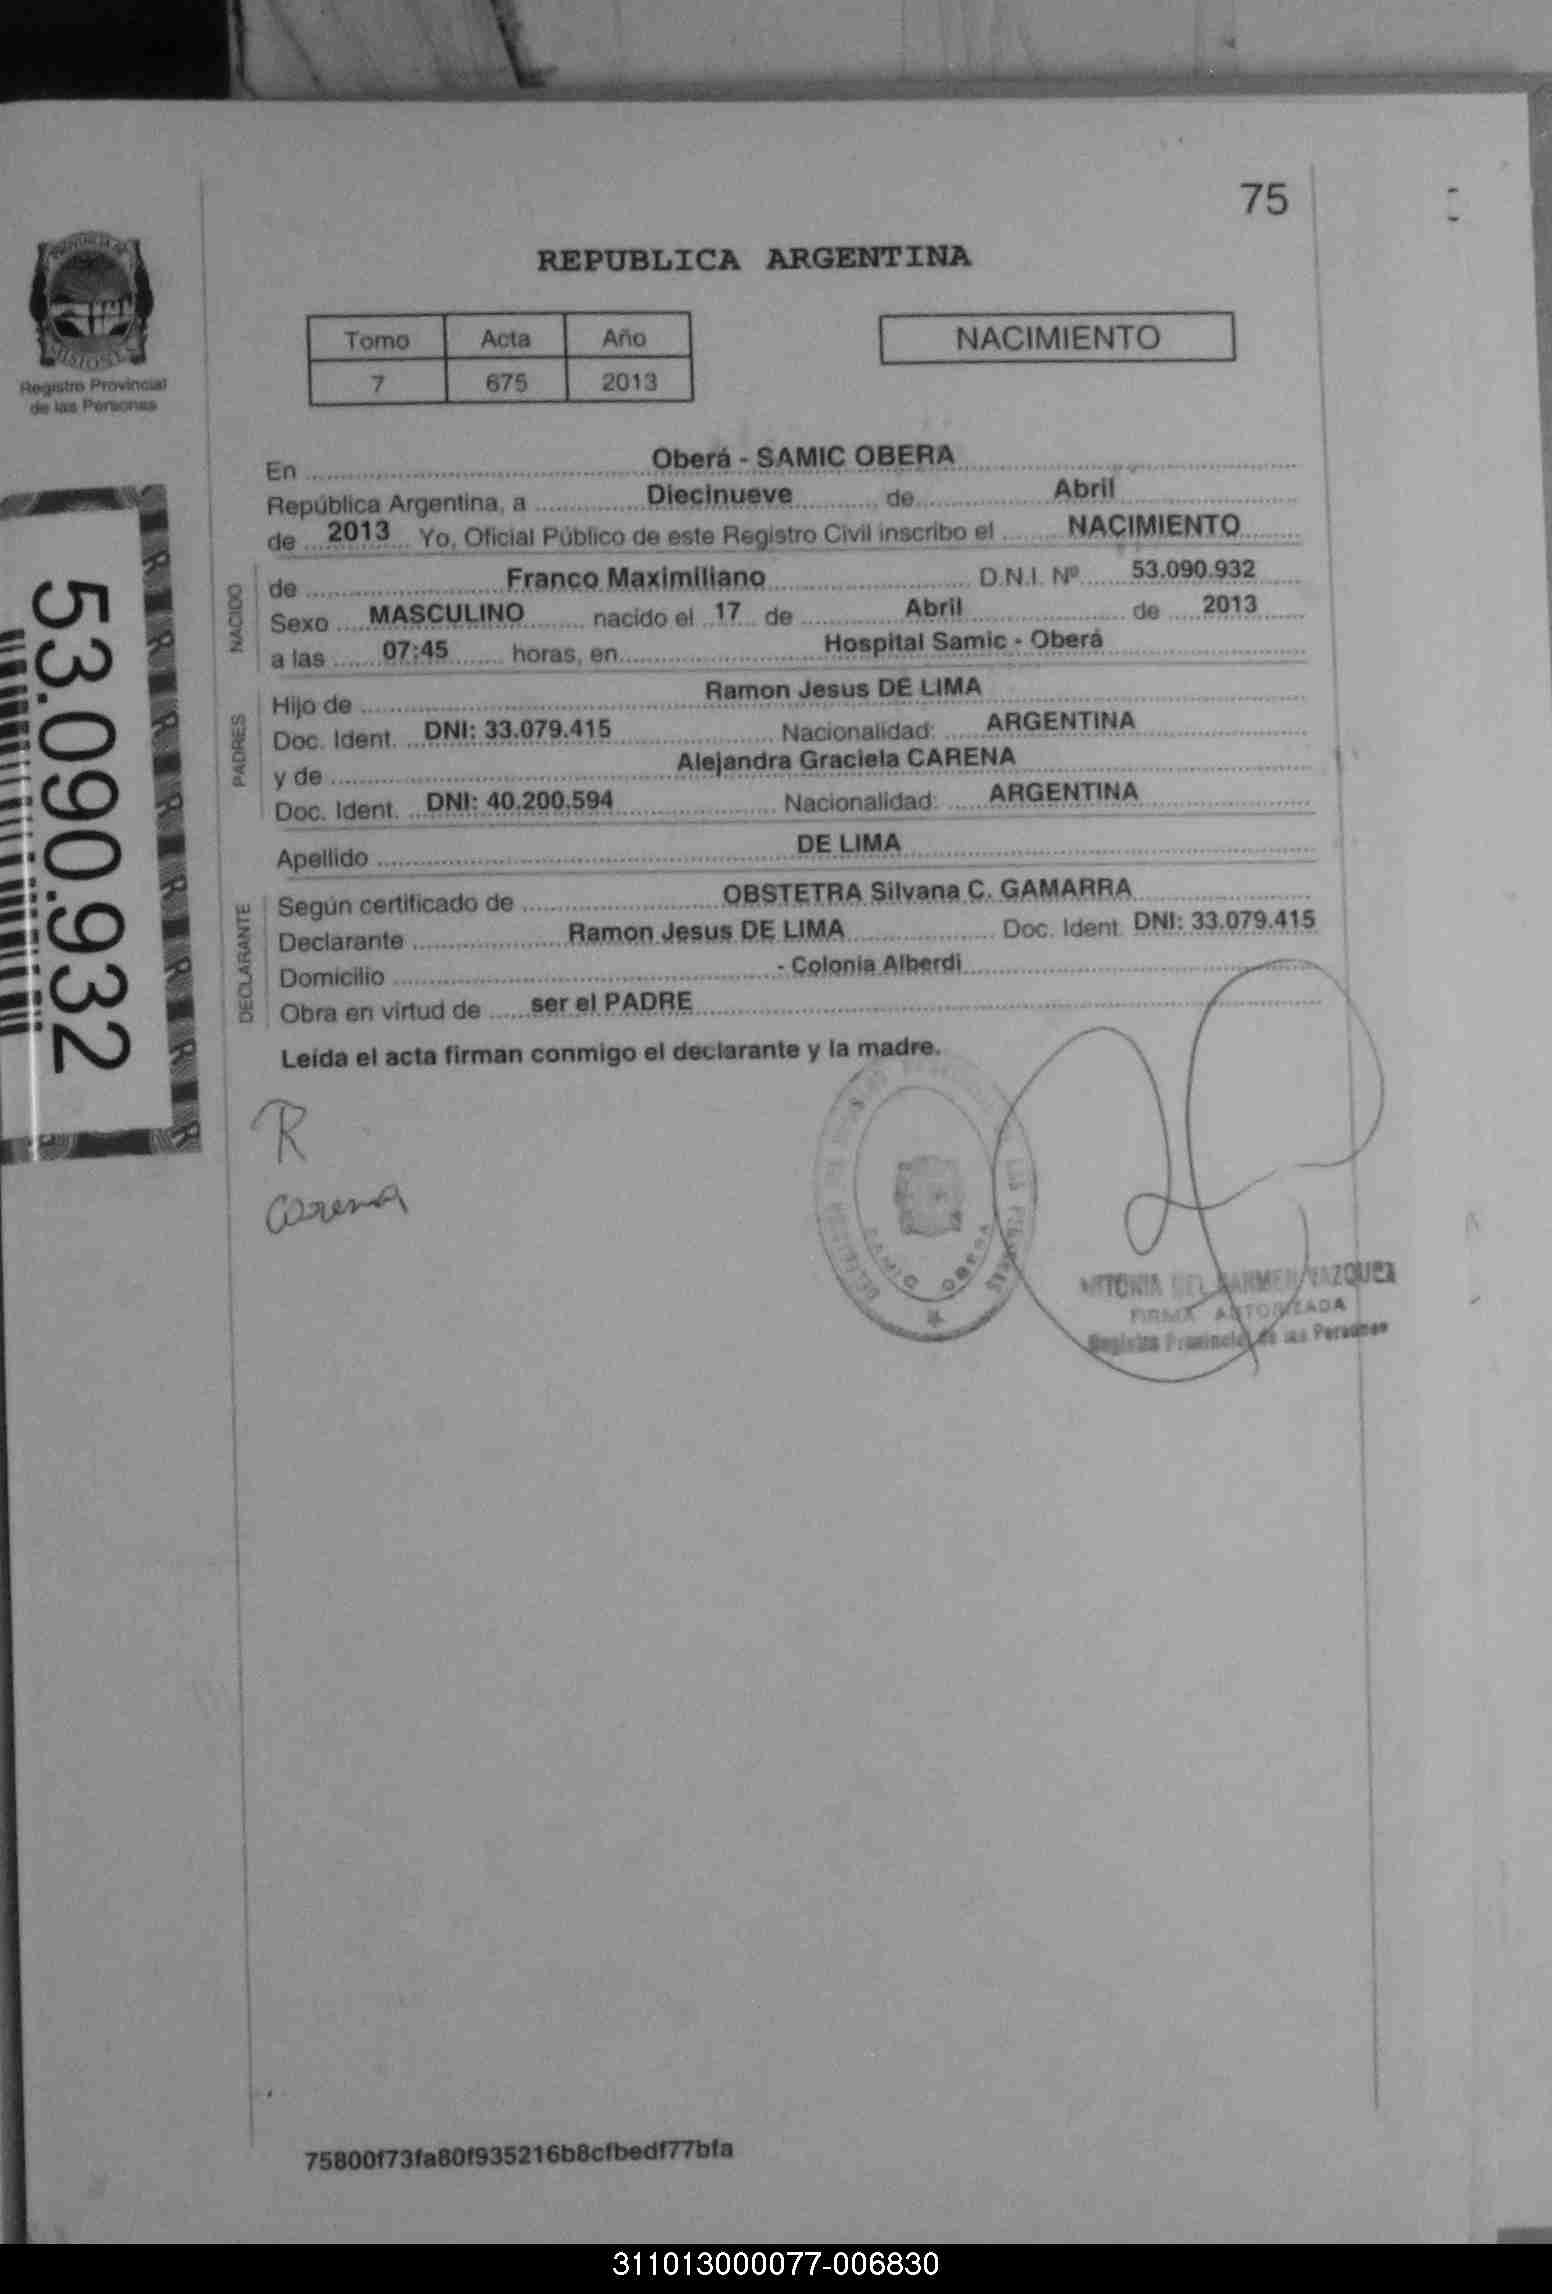 75
REPUBLICA ARGENTINA
PROVINCIA DE
MISIONES
Registro Provincial
de las Personas
Tomo Acta Año
7 675 2013
NACIMIENTO
En Oberá - SAMIC OBERA
República Argentina, a Diecinueve de Abril
de 2013 Yo, Oficial Público de este Registro Civil inscribo el NACIMIENTO
NACIDO
de Franco Maximiliano D.N.I. Nº 53.090.932
Sexo MASCULINO nacido el 17 de Abril de 2013
a las 07:45 horas, en Hospital Samic - Oberá
PADRES
Hijo de Ramon Jesus DE LIMA
Doc. Ident. DNI: 33.079.415 Nacionalidad: ARGENTINA
y de Alejandra Graciela CARENA
Doc. Ident. DNI: 40.200.594 Nacionalidad: ARGENTINA
Apellido DE LIMA
DECLARANTE
Según certificado de OBSTETRA Silvana C. GAMARRA
Declarante Ramon Jesus DE LIMA Doc. Ident. DNI: 33.079.415
Domicilio - Colonia Alberdi
Obra en virtud de ser el PADRE
Leída el acta firman conmigo el declarante y la madre.
53.090.932
R
Carena
SAMIC OBERA
DEL CARMEN VAZQUEZ
FIRMA AUTORIZADA
Registro Provincial de las Personas
75800f73fa80f935216b8cfbedf77bfa
311013000077-006830